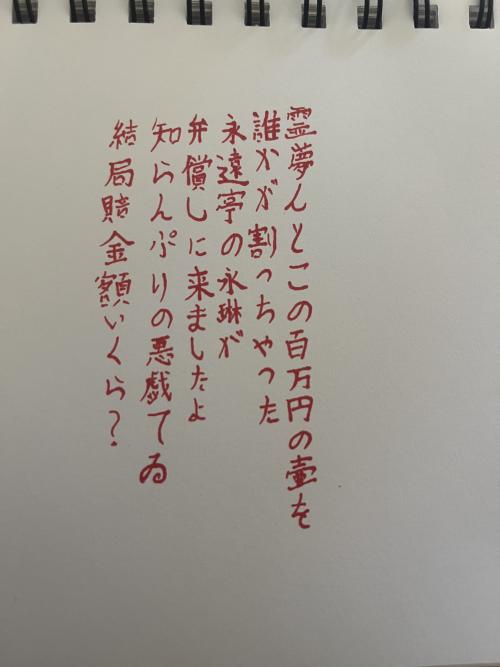 霊夢んとこの百万円の壷を
誰かが割っちゃった
永遠亭の永琳が
弁償しに来ましたよ
知らんぷりの悪戯てゐ
結局賠金額いくら?